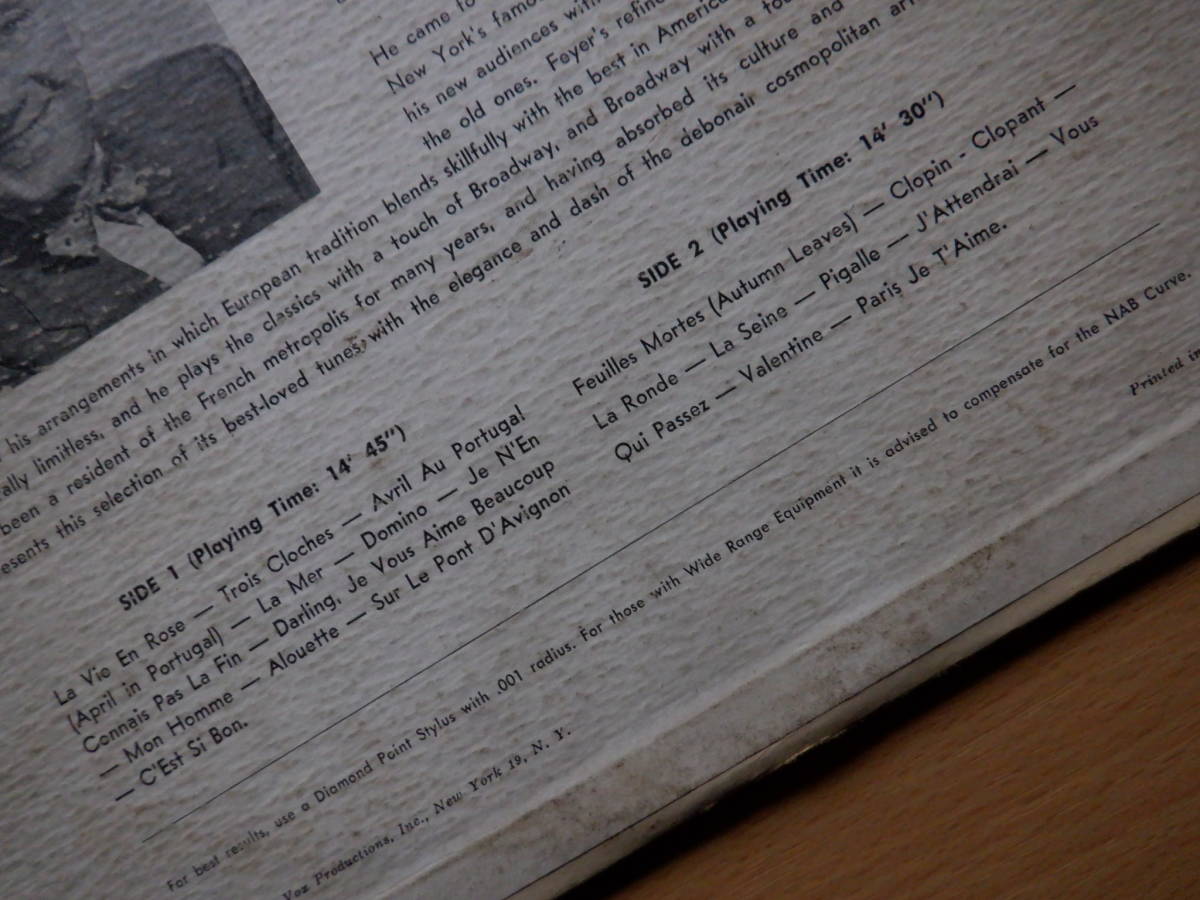 He came to
New York's famo
his new audiences with
the old ones. Feyer's refine
his arrangements in which European tradition blends skillfully with the best in America
ally limitless, and he plays the classics with a touch of Broadway, and Broadway with a tou
been a resident of the French metropolis for many years, and having absorbed its culture and
esents this selection of its best-loved tunes, with the elegance and dash of the debonair cosmopolitan art
SIDE 1 (Playing Time: 14' 45")
La Vie En Rose — Trois Cloches — Avril Au Portugal
(April in Portugal) — La Mer — Domino — Je N'En
Connais Pas La Fin — Darling, Je Vous Aime Beaucoup
— Mon Homme — Alouette — Sur Le Pont D'Avignon
— C'Est Si Bon.
SIDE 2 (Playing Time: 14' 30")
Feuilles Mortes (Autumn Leaves) — Clopin - Clopant —
La Ronde — La Seine — Pigalle — J'Attendrai — Vous
Qui Passez — Valentine — Paris Je T'Aime.
For best results, use a Diamond Point Stylus with .001 radius. For those with Wide Range Equipment it is advised to compensate for the NAB Curve.
Vox Productions, Inc., New York 19, N. Y.
Printed in